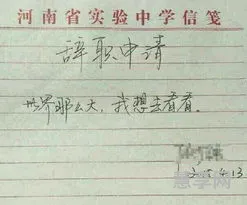 河南省实验中学信笺
辞职申请
世界那么大,我想去看看。